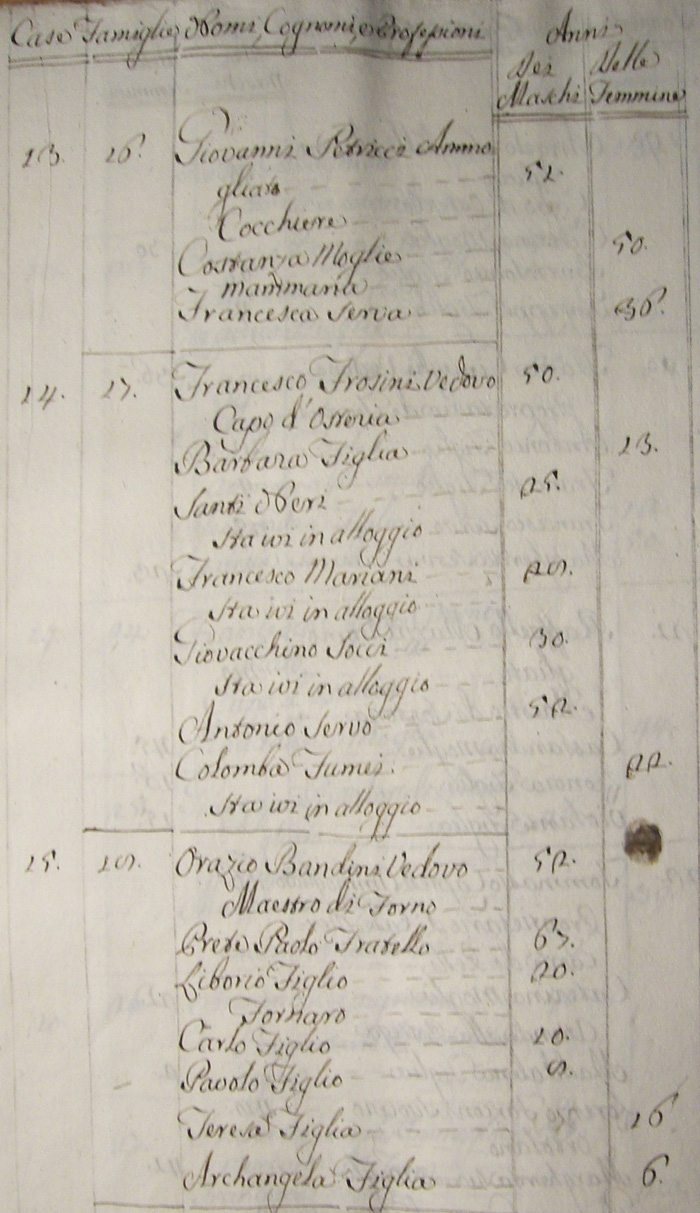 Case Famiglie, Nomi, Cognomi, e Professioni Anni
Dei Delle
Maschi Femmine
13. 16. Giovanni Petricci Ammo
gliato 52.
Cocchiere
Costanza Moglie 50.
mammana
Francesca Serva 36.
14. 17. Francesco Frosini Vedovo 50.
Capo d'Osteria
Barbara Figlia 13.
Santi Neri 25.
Sta ivi in alloggio
Francesco Mariani
Sta ivi in alloggio
Giovacchino Socci 30.
Sta ivi in alloggio
Antonio Servo 52.
Colomba Fumei. 22.
Sta ivi in alloggio
15. 18. Orazio Bandini Vedovo 52.
Maestro di Forno
Prete Paolo Fratello 67.
Liborio Figlio 20.
Fornaro
Carlo Figlio 10.
Pavolo Figlio 8.
Teresa Figlia 16
Archangela Figlia 6.